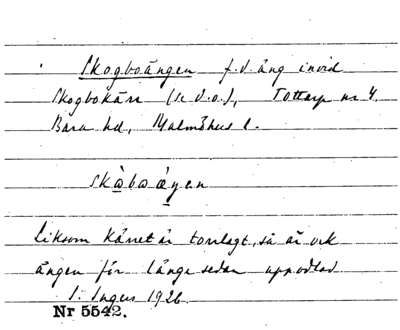 Skogboängen f.d. äng invid
Skogbokärr (se d.o.), Tottarp nr 4.
Bara hd, Malmöhus l.
skàbaǽŋen
Liksom kärret är torrlagt, så är ock
ängen för länge sedan uppodlad
I. Ingers 1926.
Nr 5542.